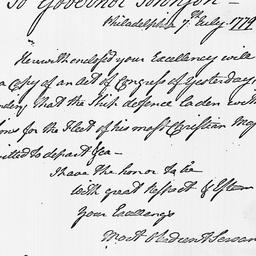 To Governor Johnson
Philadelphia 7th July 1779
Herewith enclos'd your Excellency will
a Copy of an act of Congress of Yesterday,
that the Ship defence Laden with
for the Fleet of his most Christian Maj
to depart &ca
I have the honor to be
with great respect & Esteem
Your Excellency
most Obedient Servan